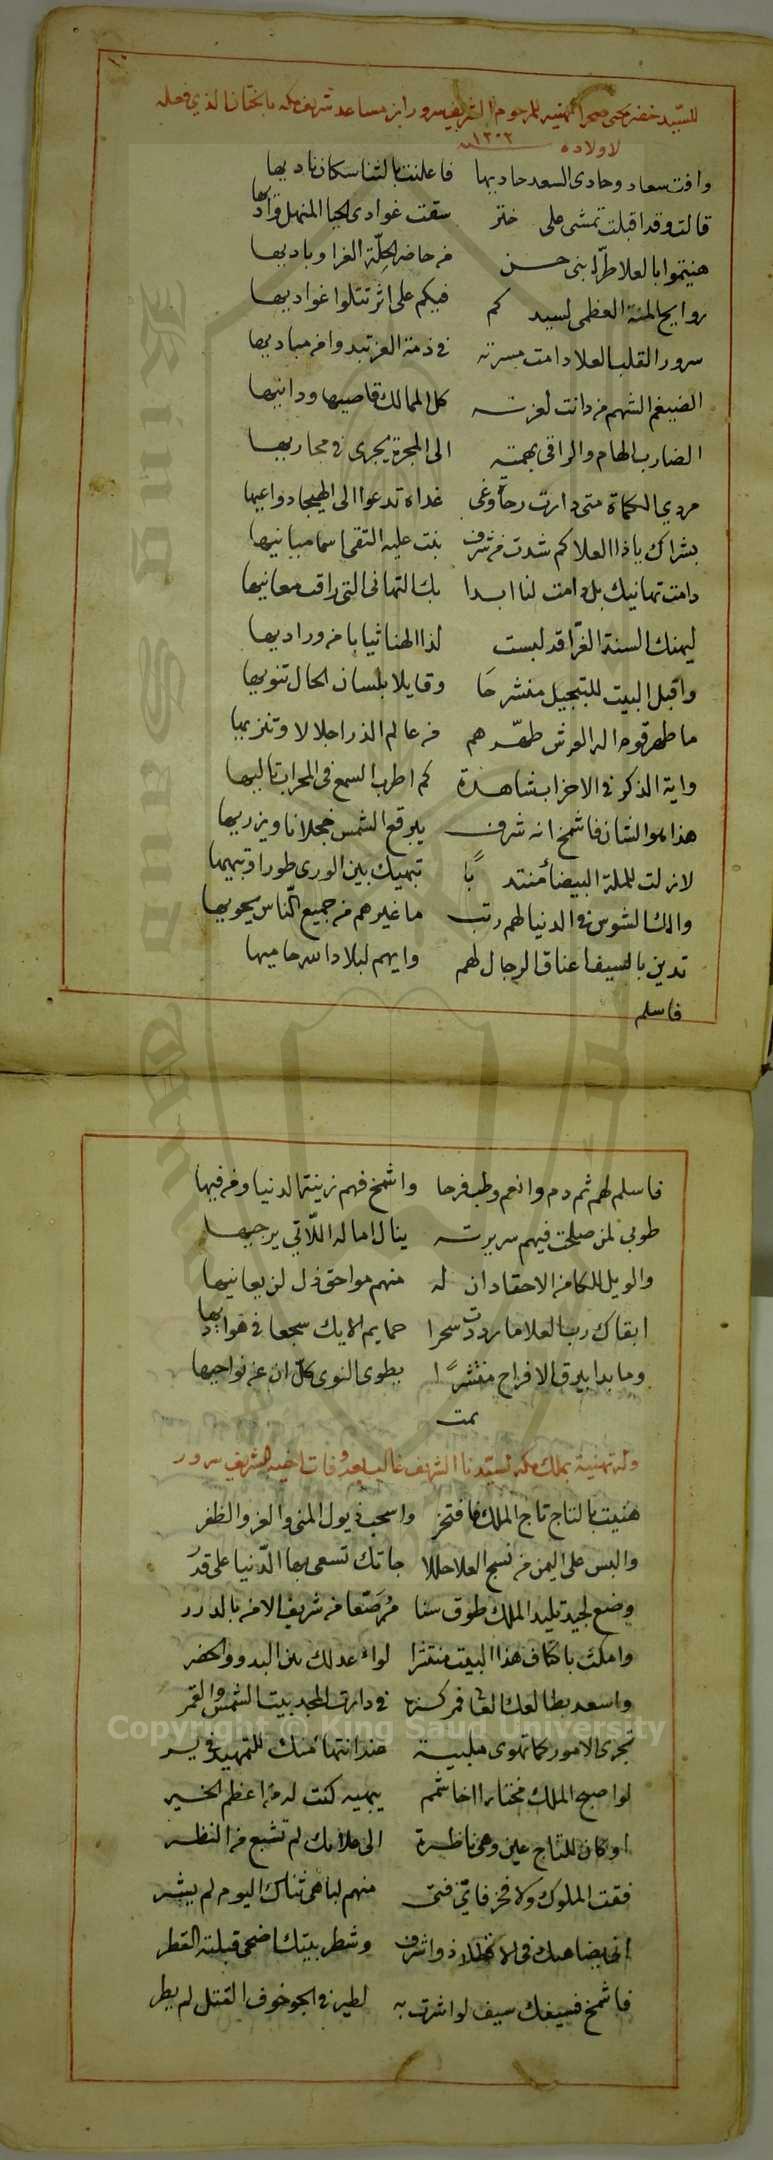 للسيد خضر يحيى صحرا تهنيه للمرحوم الشريف سرور ابن مساعد شريف مكه بالختان الذي فعله
لاولاده سنه ١٢٠٢
وافت سعاد وحادى السعد حاديها فاعلنت بالثنا سكان ناديها
قالت وقد اقبلت تمشى على خفر سقت غوادى الحيا المنهل
هنيتموا بالعلا طرّا بنى حسن من حاضر الحلّة الغرا وباديها
روايح المنة العظمى لسيدكم فيكم على اثر تتلوا غواديها
سرور القلب العلا دامت مسرته في ذمة العز تبدو من مباديها
الضيغم الشهم من دانت لعزته كل الممالك قاصيها ودانيها
الضارب الهام والراقى بهمته الى المجرة يجرى فى مجاريها
مردي الكماة متى دارت رحاة وغى غداة تدعوا الى الهيجا دواعيها
بشراك ياذا العلا كم شدت من شرف بنت عليه التقى اسما مبانيها
دامت تهانيك بل دامت لنا ابدا بك التهانى التى راقت معانيها
ليهنك السنة الغرّا قد لبست لذا الهنا ثيابا من
واقبل البيت للتبجيل منشرحَا وقايلا بلسان الحال تنويها
ما طهر قوم اله العرش طهّرهم من عالم الذر اجلالا وتنزيها
واية الذكر في الاحزاب شاهدة كم اطرب السمع فى المحراب تاليها
هذا هو الشان فاشمخ انه شرف يبرقع الشمس خجلانا ويزريها
لازلت للملة البيضا منتدبًا تبهيك بين الورى طورا وتبهيها
وال الشوس في الدنيا لهم رتب ما غيرهم من جميع النّاس يحويها
تدين بالسيف اعناق الرجال لهم وايهم لبلاد الله حاميها
فاسلم
فاسلم لهم ثم دم وانعم وطب فرحا واشمخ فهم زينة الدنيا ومن فيها
طوبى لمن صلحت فيهم سريرته ينال اماله اللّاتي يرجيها
والويل للكامن الاحقاد ان له منهم مواحق ذل لن يعانيها
ابقاك رب العلا ما رددت سحرا حمايم الايك سجعا فى
وما بدا بيرق الافراح منتشرًا يطوى النوى كلّ ان عن نواحيها
تمت
وله تهنية بملك مكه لسيدنا الشريف غالب بعد وفات اخيه الشريف سرور
هنيت بالتاج تاج الملك فافتخر واسحب ذيول المنى والعز والظفر
والبس على اليمن من نسج العلا حللا جاتك تسعى بها الدّنيا على قدر
وضع لجيد تليد الملك طوق سنا مُرَصّعا من شريف الامر بالدرر
وامكث باكناف هذا البيت منتشرا لواء عدلك بين البدو والحضر
واسعد بطالعك في دارة المجد بيت الشمس والقمر
تجرى الامور كما تهوى ملبية عند انتهائها منك للتمهيد في
لو اصبح الملك مختارا اخا شمم يبهيه كنت له من اعظم الخير
او كان للتاج عين وهى ناظرة الى علايك لم تشبع من النظر
فقت الملوك ولا فخر فايّ فتى منهم لباهى ثناك اليوم لم يشر
انى يضاهيك فى ذو شرف وشطر بيتك اضحى قبلة القطر
فاشمخ فسيفك سيف لو اشرت به لطير في الجو خوف القتل لم يطر
King Saud University
Copyright © King Saud University